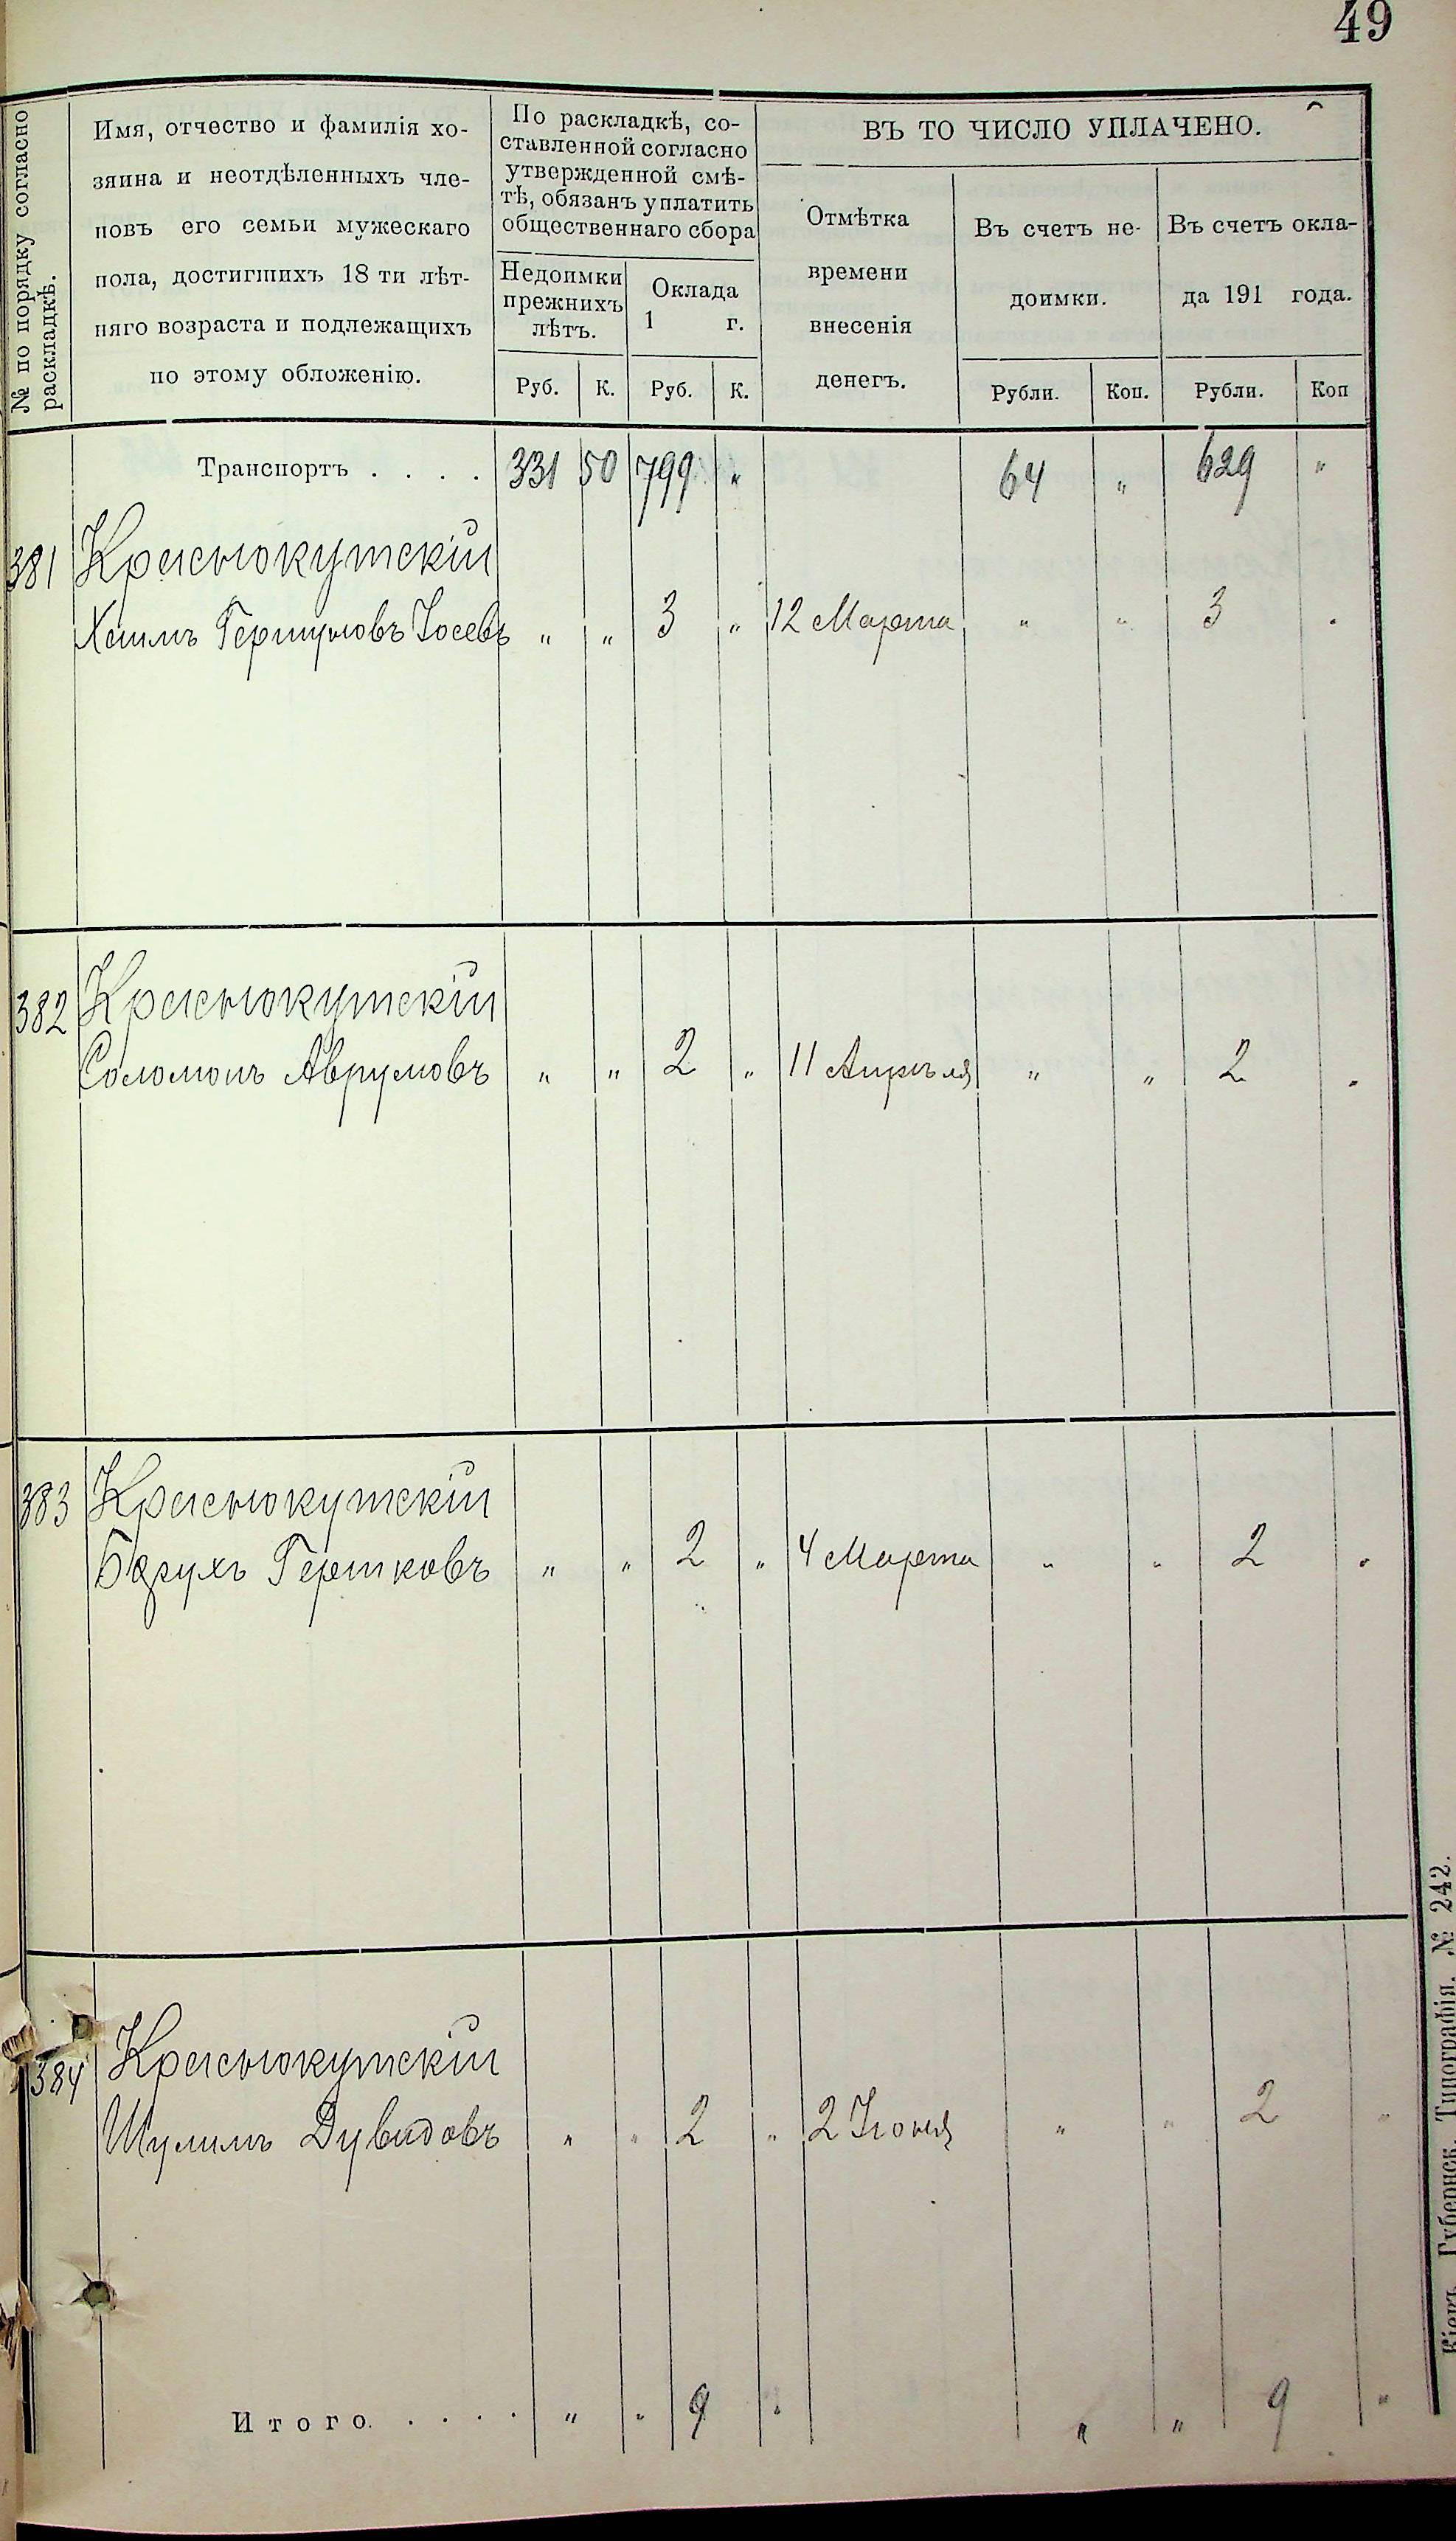 49
№ по порядку согласно
раскладкѣ.
Имя, отчество и фамилія хо-
зяина и неотдѣленныхъ чле-
новъ его семьи мужескаго
пола, достигшихъ 18 ти лѣт-
няго возраста и подлежащихъ
по этому обложенію.
По раскладкѣ, со-
ставленной согласно
утвержденной смѣ-
тѣ, обязанъ уплатить
общественнаго сбора
Недоимки
прежнихъ
лѣтъ.
Оклада
1 г.
Руб. К. Руб. К.
ВЪ ТО ЧИСЛО УПЛАЧЕНО.
Отмѣтка
времени
внесенія
денегъ.
Въ счетъ не-
доимки.
Въ счетъ окла-
да 191 года.
Рубли. Коп. Рубли. Коп
Транспортъ . . . . 331 50 799 „ 64 „ 629 „
381 Краснокутскій
Хаимъ Гершуновъ Іосевъ „ „ 3 „ 12 Марта „ „ 3 „
382 Краснокутскій
Соломонъ Аврумовъ „ „ 2 „ 11 Апрѣля „ „ 2 „
383 Краснокутскій
Борухъ Гершковъ „ „ 2 „ 4 Марта „ „ 2 „
384 Краснокутскій
Шулимъ Дувидовъ „ „ 2 „ 2 Іюня „ „ 2 „
Итого. . . . . „ „ 9 „ „ „ 9 „
Кіевъ. Губернск. Типографія. № 242.